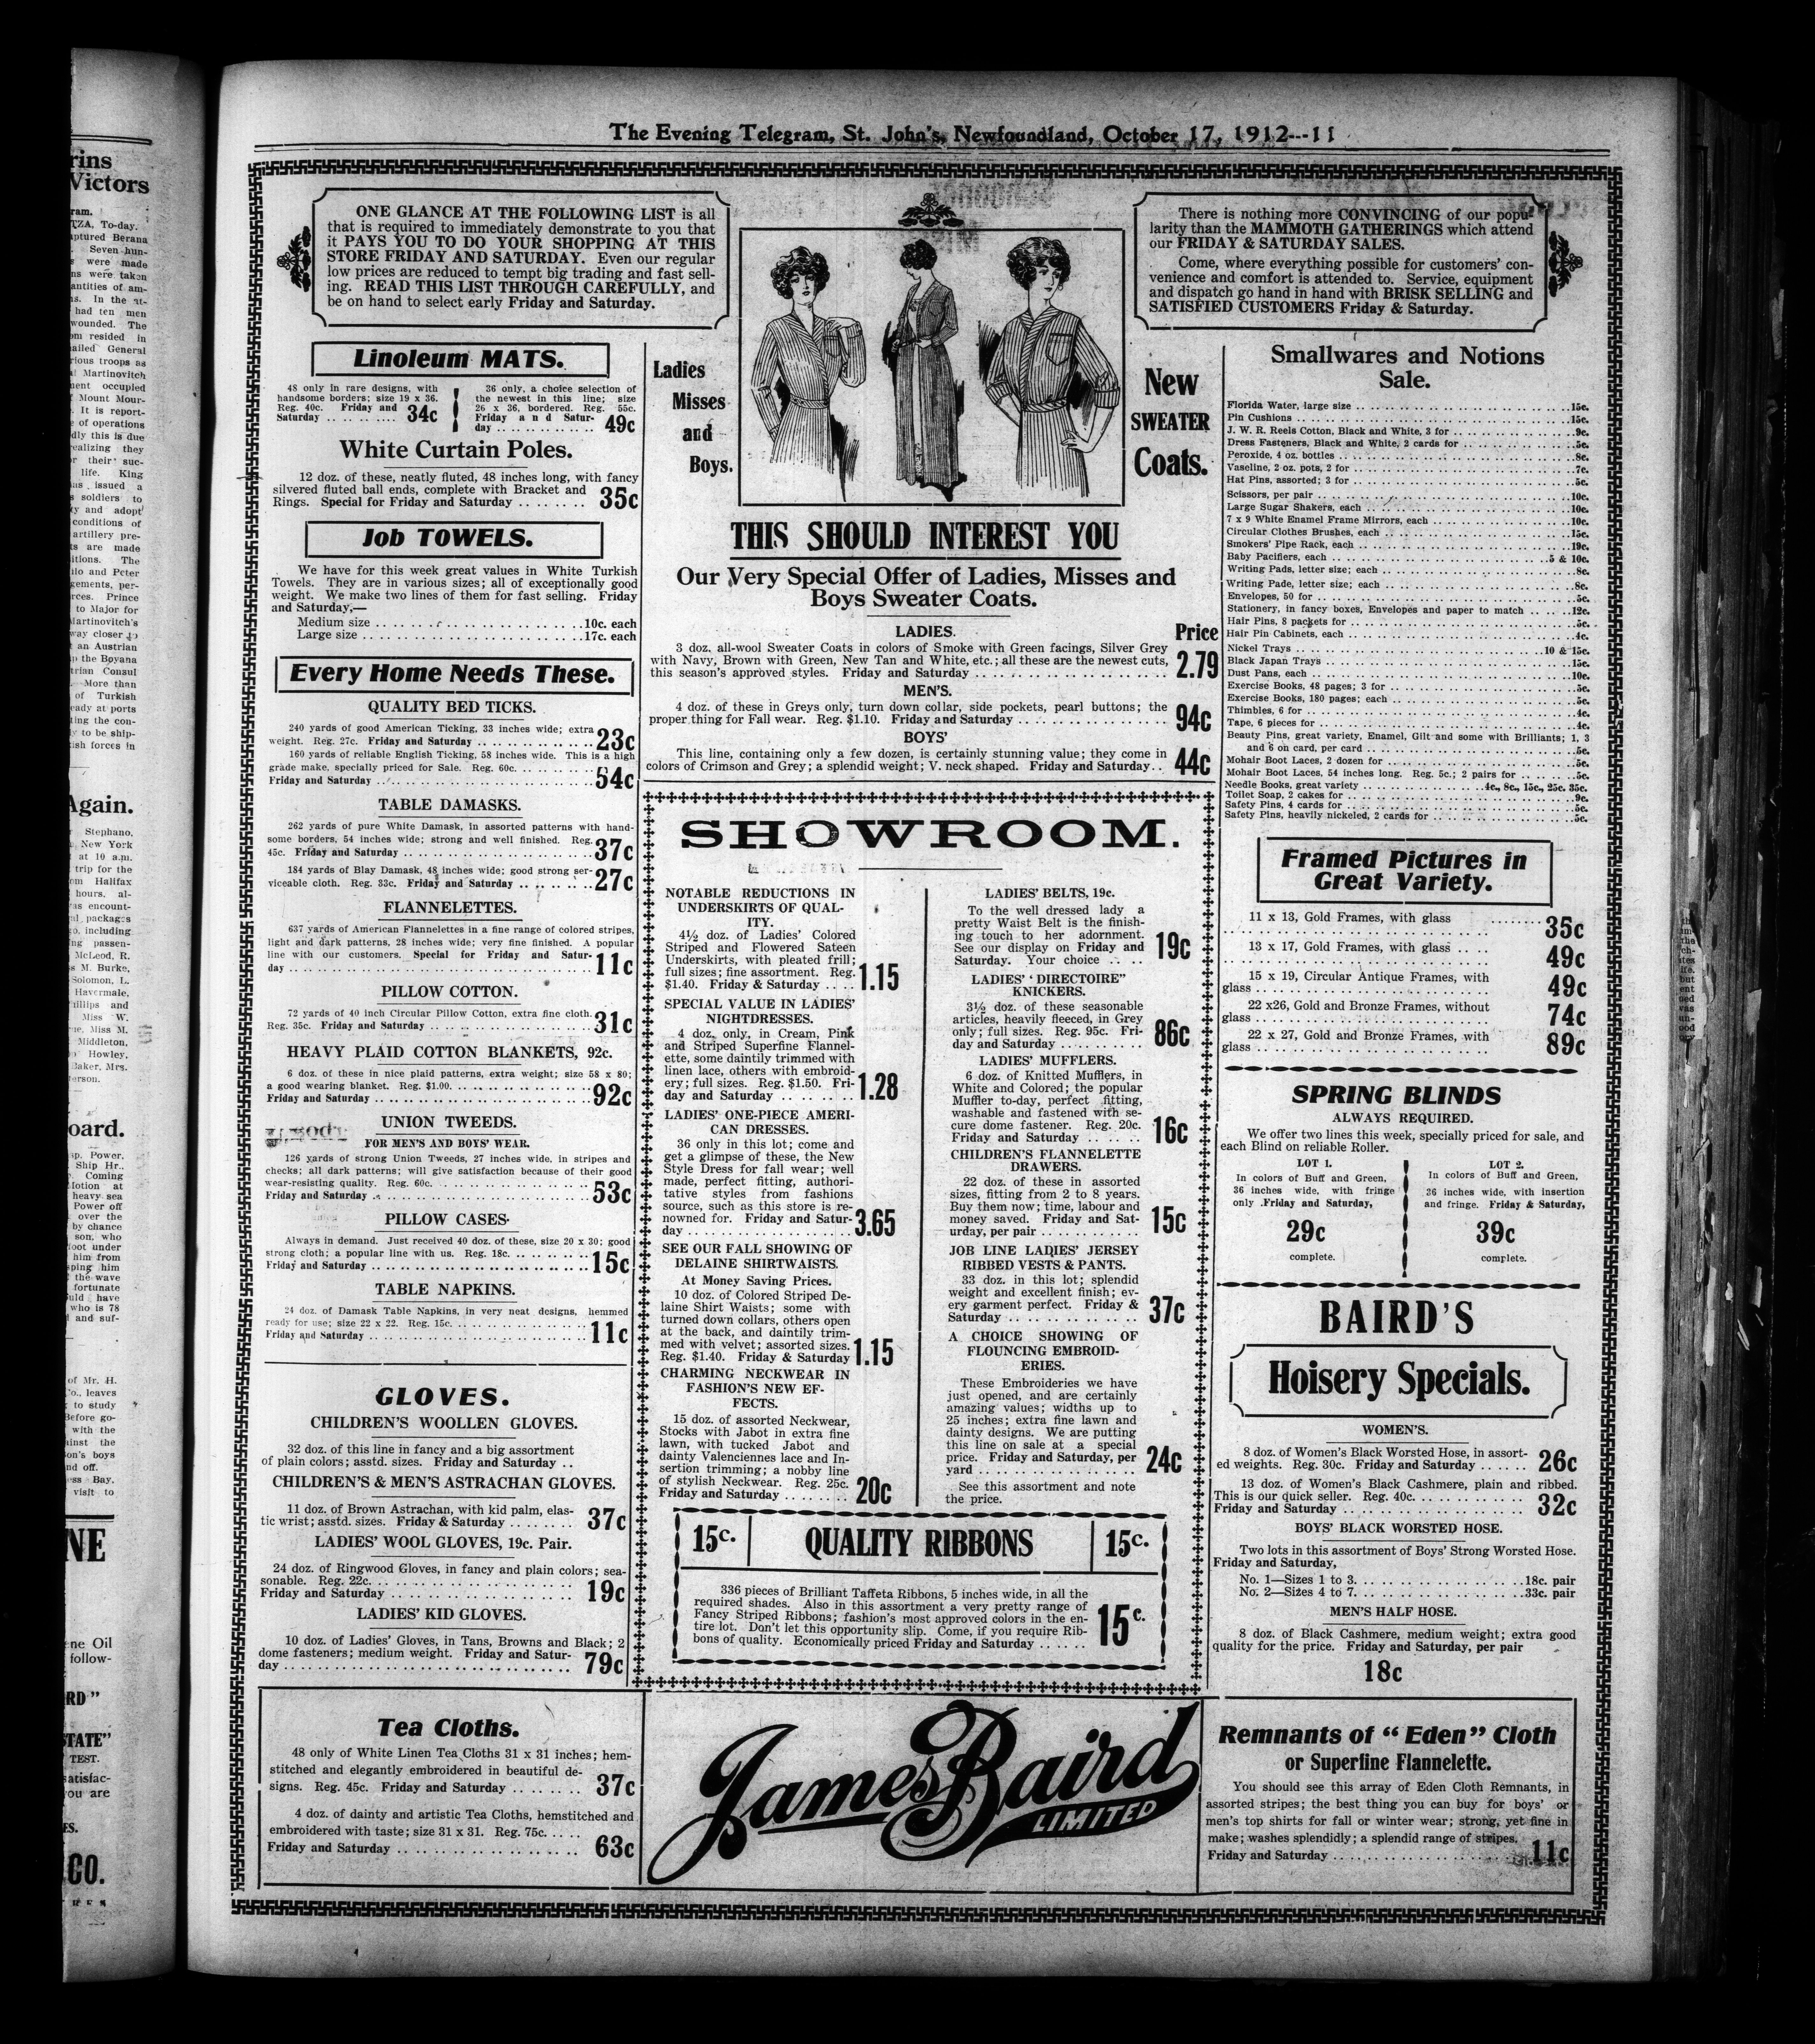 The Evening Telegram, St. John's, Newfoundland, October 17, 1912---11
ONE GLANCE AT THE FOLLOWING LIST is all
that is required to immediately demonstrate to you that
it PAYS YOU TO DO YOUR SHOPPING AT THIS
STORE FRIDAY AND SATURDAY. Even our regular
low prices are reduced to tempt big trading and fast sell-
ing. READ THIS LIST THROUGH CAREFULLY, and
be on hand to select early Friday and Saturday.
There is nothing more CONVINCING of our popu-
larity than the MAMMOTH GATHERINGS which attend
our FRIDAY & SATURDAY SALES.
Come, where everything possible for customers' con-
venience and comfort is attended to. Service, equipment
and dispatch go hand in hand with BRISK SELLING and
SATISFIED CUSTOMERS Friday & Saturday.
Linoleum MATS.
48 only in rare designs, with
handsome borders; size 19 x 36.
Reg. 40c. Friday and
Saturday .. .. .. .. 34c
36 only, a choice selection of
the newest in this line; size
26 x 36, bordered. Reg. 55c.
Friday and Satur-
day .. .. .. .. .. 49c
White Curtain Poles.
12 doz. of these, neatly fluted, 48 inches long, with fancy
silvered fluted ball ends, complete with Bracket and
Rings. Special for Friday and Saturday .. .. .. .. 35c
Job TOWELS.
We have for this week great values in White Turkish
Towels. They are in various sizes; all of exceptionally good
weight. We make two lines of them for fast selling. Friday
and Saturday,—
Medium size .. .. .. .. .. .. 10c. each
Large size .. .. .. .. .. .. 17c. each
Every Home Needs These.
QUALITY BED TICKS.
240 yards of good American Ticking, 33 inches wide; extra
weight. Reg. 27c. Friday and Saturday .. .. .. .. 23c
160 yards of reliable English Ticking, 58 inches wide. This is a high
grade make, specially priced for Sale. Reg. 60c. .. .. ..
Friday and Saturday .. .. .. .. .. 54c
TABLE DAMASKS.
262 yards of pure White Damask, in assorted patterns with hand-
some borders, 54 inches wide; strong and well finished. Reg.
45c. Friday and Saturday .. .. .. .. 37c
184 yards of Blay Damask, 48 inches wide; good strong ser-
viceable cloth. Reg. 33c. Friday and Saturday .. .. .. 27c
FLANNELETTES.
637 yards of American Flannelettes in a fine range of colored stripes,
light and dark patterns, 28 inches wide; very fine finished. A popular
line with our customers. Special for Friday and Satur-
day .. .. .. .. .. .. 11c
PILLOW COTTON.
72 yards of 40 inch Circular Pillow Cotton, extra fine cloth.
Reg. 35c. Friday and Saturday .. .. .. .. 31c
HEAVY PLAID COTTON BLANKETS, 92c.
6 doz. of these in nice plaid patterns, extra weight; size 58 x 80;
a good wearing blanket. Reg. $1.00. .. .. .. ..
Friday and Saturday .. .. .. .. 92c
UNION TWEEDS.
FOR MEN'S AND BOYS' WEAR.
126 yards of strong Union Tweeds, 27 inches wide, in stripes and
checks; all dark patterns; will give satisfaction because of their good
wear-resisting quality. Reg. 60c. .. .. .. ..
Friday and Saturday .. .. .. .. 53c
PILLOW CASES.
Always in demand. Just received 40 doz. of these, size 20 x 30; good
strong cloth; a popular line with us. Reg. 18c. .. .. ..
Friday and Saturday .. .. .. .. 15c
TABLE NAPKINS.
24 doz. of Damask Table Napkins, in very neat designs, hemmed
ready for use; size 22 x 22. Reg. 15c. .. .. .. ..
Friday and Saturday .. .. .. .. 11c
GLOVES.
CHILDREN'S WOOLLEN GLOVES.
32 doz. of this line in fancy and a big assortment
of plain colors; asstd. sizes. Friday and Saturday ..
CHILDREN'S & MEN'S ASTRACHAN GLOVES.
11 doz. of Brown Astrachan, with kid palm, elas-
tic wrist; asstd. sizes. Friday & Saturday .. .. .. 37c
LADIES' WOOL GLOVES, 19c. Pair.
24 doz. of Ringwood Gloves, in fancy and plain colors; sea-
sonable. Reg. 22c. .. .. .. ..
Friday and Saturday .. .. .. .. 19c
LADIES' KID GLOVES.
10 doz. of Ladies' Gloves, in Tans, Browns and Black; 2
dome fasteners; medium weight. Friday and Satur-
day .. .. .. .. .. 79c
Tea Cloths.
48 only of White Linen Tea Cloths 31 x 31 inches; hem-
stitched and elegantly embroidered in beautiful de-
signs. Reg. 45c. Friday and Saturday .. .. .. 37c
4 doz. of dainty and artistic Tea Cloths, hemstitched and
embroidered with taste; size 31 x 31. Reg. 75c. .. ..
Friday and Saturday .. .. .. .. 63c
Ladies
Misses
and
Boys.
New
SWEATER
Coats.
THIS SHOULD INTEREST YOU
Our Very Special Offer of Ladies, Misses and
Boys Sweater Coats.
LADIES. Price
3 doz. all-wool Sweater Coats in colors of Smoke with Green facings, Silver Grey
with Navy, Brown with Green, New Tan and White, etc.; all these are the newest cuts,
this season's approved styles. Friday and Saturday .. .. .. .. 2.79
MEN'S.
4 doz. of these in Greys only, turn down collar, side pockets, pearl buttons; the
proper thing for Fall wear. Reg. $1.10. Friday and Saturday .. .. .. .. 94c
BOYS'
This line, containing only a few dozen, is certainly stunning value; they come in
colors of Crimson and Grey; a splendid weight; V. neck shaped. Friday and Saturday.. 44c
SHOWROOM.
NOTABLE REDUCTIONS IN
UNDERSKIRTS OF QUAL-
ITY.
4½ doz. of Ladies' Colored
Striped and Flowered Sateen
Underskirts, with pleated frill;
full sizes; fine assortment. Reg.
$1.40. Friday & Saturday .. .. 1.15
SPECIAL VALUE IN LADIES'
NIGHTDRESSES.
4 doz. only, in Cream, Pink
and Striped Superfine Flannel-
ette, some daintily trimmed with
linen lace, others with embroid-
ery; full sizes. Reg. $1.50. Fri-
day and Saturday .. .. .. 1.28
LADIES' ONE-PIECE AMERI-
CAN DRESSES.
36 only in this lot; come and
get a glimpse of these, the New
Style Dress for fall wear; well
made, perfect fitting, authori-
tative styles from fashions
source, such as this store is re-
nowned for. Friday and Satur-
day .. .. .. .. 3.65
SEE OUR FALL SHOWING OF
DELAINE SHIRTWAISTS.
At Money Saving Prices.
10 doz. of Colored Striped De-
laine Shirt Waists; some with
turned down collars, others open
at the back, and daintily trim-
med with velvet; assorted sizes.
Reg. $1.40. Friday & Saturday 1.15
CHARMING NECKWEAR IN
FASHION'S NEW EF-
FECTS.
15 doz. of assorted Neckwear,
Stocks with Jabot in extra fine
lawn, with tucked Jabot and
dainty Valenciennes lace and In-
sertion trimming; a nobby line
of stylish Neckwear. Reg. 25c.
Friday and Saturday .. .. .. 20c
LADIES' BELTS, 19c.
To the well dressed lady a
pretty Waist Belt is the finish-
ing touch to her adornment.
See our display on Friday and
Saturday. Your choice .. .. 19c
LADIES' 'DIRECTOIRE"
KNICKERS.
3½ doz. of these seasonable
articles, heavily fleeced, in Grey
only; full sizes. Reg. 95c. Fri-
day and Saturday .. .. .. 86c
LADIES' MUFFLERS.
6 doz. of Knitted Mufflers, in
White and Colored; the popular
Muffler to-day, perfect fitting,
washable and fastened with se-
cure dome fastener. Reg. 20c.
Friday and Saturday .. .. .. 16c
CHILDREN'S FLANNELETTE
DRAWERS.
22 doz. of these in assorted
sizes, fitting from 2 to 8 years.
Buy them now; time, labour and
money saved. Friday and Sat-
urday, per pair .. .. .. 15c
JOB LINE LADIES' JERSEY
RIBBED VESTS & PANTS.
33 doz. in this lot; splendid
weight and excellent finish; ev-
ery garment perfect. Friday &
Saturday .. .. .. .. 37c
A CHOICE SHOWING OF
FLOUNCING EMBROID-
ERIES.
These Embroideries we have
just opened, and are certainly
amazing values; widths up to
25 inches; extra fine lawn and
dainty designs. We are putting
this line on sale at a special
price. Friday and Saturday, per
yard .. .. .. .. 24c
See this assortment and note
the price.
15c. QUALITY RIBBONS 15c.
336 pieces of Brilliant Taffeta Ribbons, 5 inches wide, in all the
required shades. Also in this assortment a very pretty range of
Fancy Striped Ribbons; fashion's most approved colors in the en-
tire lot. Don't let this opportunity slip. Come, if you require Rib-
bons of quality. Economically priced Friday and Saturday .. .. .. 15c.
James Baird
LIMITED
Smallwares and Notions
Sale.
Florida Water, large size .. .. .. .. 15c.
Pin Cushions .. .. .. .. 15c.
J. W. R. Reels Cotton, Black and White, 3 for .. .. .. 9c.
Dress Fasteners, Black and White, 2 cards for .. .. .. 5c.
Peroxide, 4 oz. bottles .. .. .. .. 8c.
Vaseline, 2 oz. pots, 2 for .. .. .. .. 7c.
Hat Pins, assorted; 3 for .. .. .. .. 5c.
Scissors, per pair .. .. .. .. 10c.
Large Sugar Shakers, each .. .. .. .. 10c.
7 x 9 White Enamel Frame Mirrors, each .. .. .. 10c.
Circular Clothes Brushes, each .. .. .. .. 15c.
Smokers' Pipe Rack, each .. .. .. .. 19c.
Baby Pacifiers, each .. .. .. .. 5 & 10c.
Writing Pads, letter size; each .. .. .. .. 8c.
Writing Pade, letter size; each .. .. .. .. 8c.
Envelopes, 50 for .. .. .. .. 5c.
Stationery, in fancy boxes, Envelopes and paper to match .. .. 12c.
Hair Pins, 8 packets for .. .. .. .. 5c.
Hair Pin Cabinets, each .. .. .. .. 4c.
Nickel Trays .. .. .. .. 10 & 15c.
Black Japan Trays .. .. .. .. 15c.
Dust Pans, each .. .. .. .. 10c.
Exercise Books, 48 pages; 3 for .. .. .. .. 5c.
Exercise Books, 180 pages; each .. .. .. .. 5c.
Thimbles, 6 for .. .. .. .. 4c.
Tape, 6 pieces for .. .. .. .. 4c.
Beauty Pins, great variety, Enamel, Gilt and some with Brilliants; 1, 3
and 6 on card, per card .. .. .. .. 5c.
Mohair Boot Laces, 2 dozen for .. .. .. .. 5c.
Mohair Boot Laces, 54 inches long. Reg. 5c.; 2 pairs for .. .. .. 5c.
Needle Books, great variety .. .. .. .. 4c., 8c., 15c., 25c. 35c.
Toilet Soap, 2 cakes for .. .. .. .. 9c.
Safety Pins, 4 cards for .. .. .. .. 5c.
Safety Pins, heavily nickeled, 2 cards for .. .. .. .. 5c.
Framed Pictures in
Great Variety.
11 x 13, Gold Frames, with glass .. .. 35c
13 x 17, Gold Frames, with glass .. .. 49c
15 x 19, Circular Antique Frames, with
glass .. .. .. .. 49c
22 x26, Gold and Bronze Frames, without
glass .. .. .. .. 74c
22 x 27, Gold and Bronze Frames, with
glass .. .. .. .. 89c
SPRING BLINDS
ALWAYS REQUIRED.
We offer two lines this week, specially priced for sale, and
each Blind on reliable Roller.
LOT 1.
In colors of Buff and Green,
36 inches wide, with fringe
only .Friday and Saturday,
29c
complete.
LOT 2.
In colors of Buff and Green,
36 inches wide, with insertion
and fringe. Friday & Saturday,
39c
complete.
BAIRD'S
Hoisery Specials.
WOMEN'S.
8 doz. of Women's Black Worsted Hose, in assort-
ed weights. Reg. 30c. Friday and Saturday .. .. .. 26c
13 doz. of Women's Black Cashmere, plain and ribbed.
This is our quick seller. Reg. 40c. .. .. .. ..
Friday and Saturday .. .. .. .. 32c
BOYS' BLACK WORSTED HOSE.
Two lots in this assortment of Boys' Strong Worsted Hose.
Friday and Saturday,
No. 1—Sizes 1 to 3. .. .. .. .. 18c. pair
No. 2—Sizes 4 to 7. .. .. .. .. 33c. pair
MEN'S HALF HOSE.
8 doz. of Black Cashmere, medium weight; extra good
quality for the price. Friday and Saturday, per pair
18c
Remnants of "Eden" Cloth
or Superfine Flannelette.
You should see this array of Eden Cloth Remnants, in
assorted stripes; the best thing you can buy for boys' or
men's top shirts for fall or winter wear; strong, yet fine in
make; washes splendidly; a splendid range of stripes.
Friday and Saturday .. .. .. .. 11c